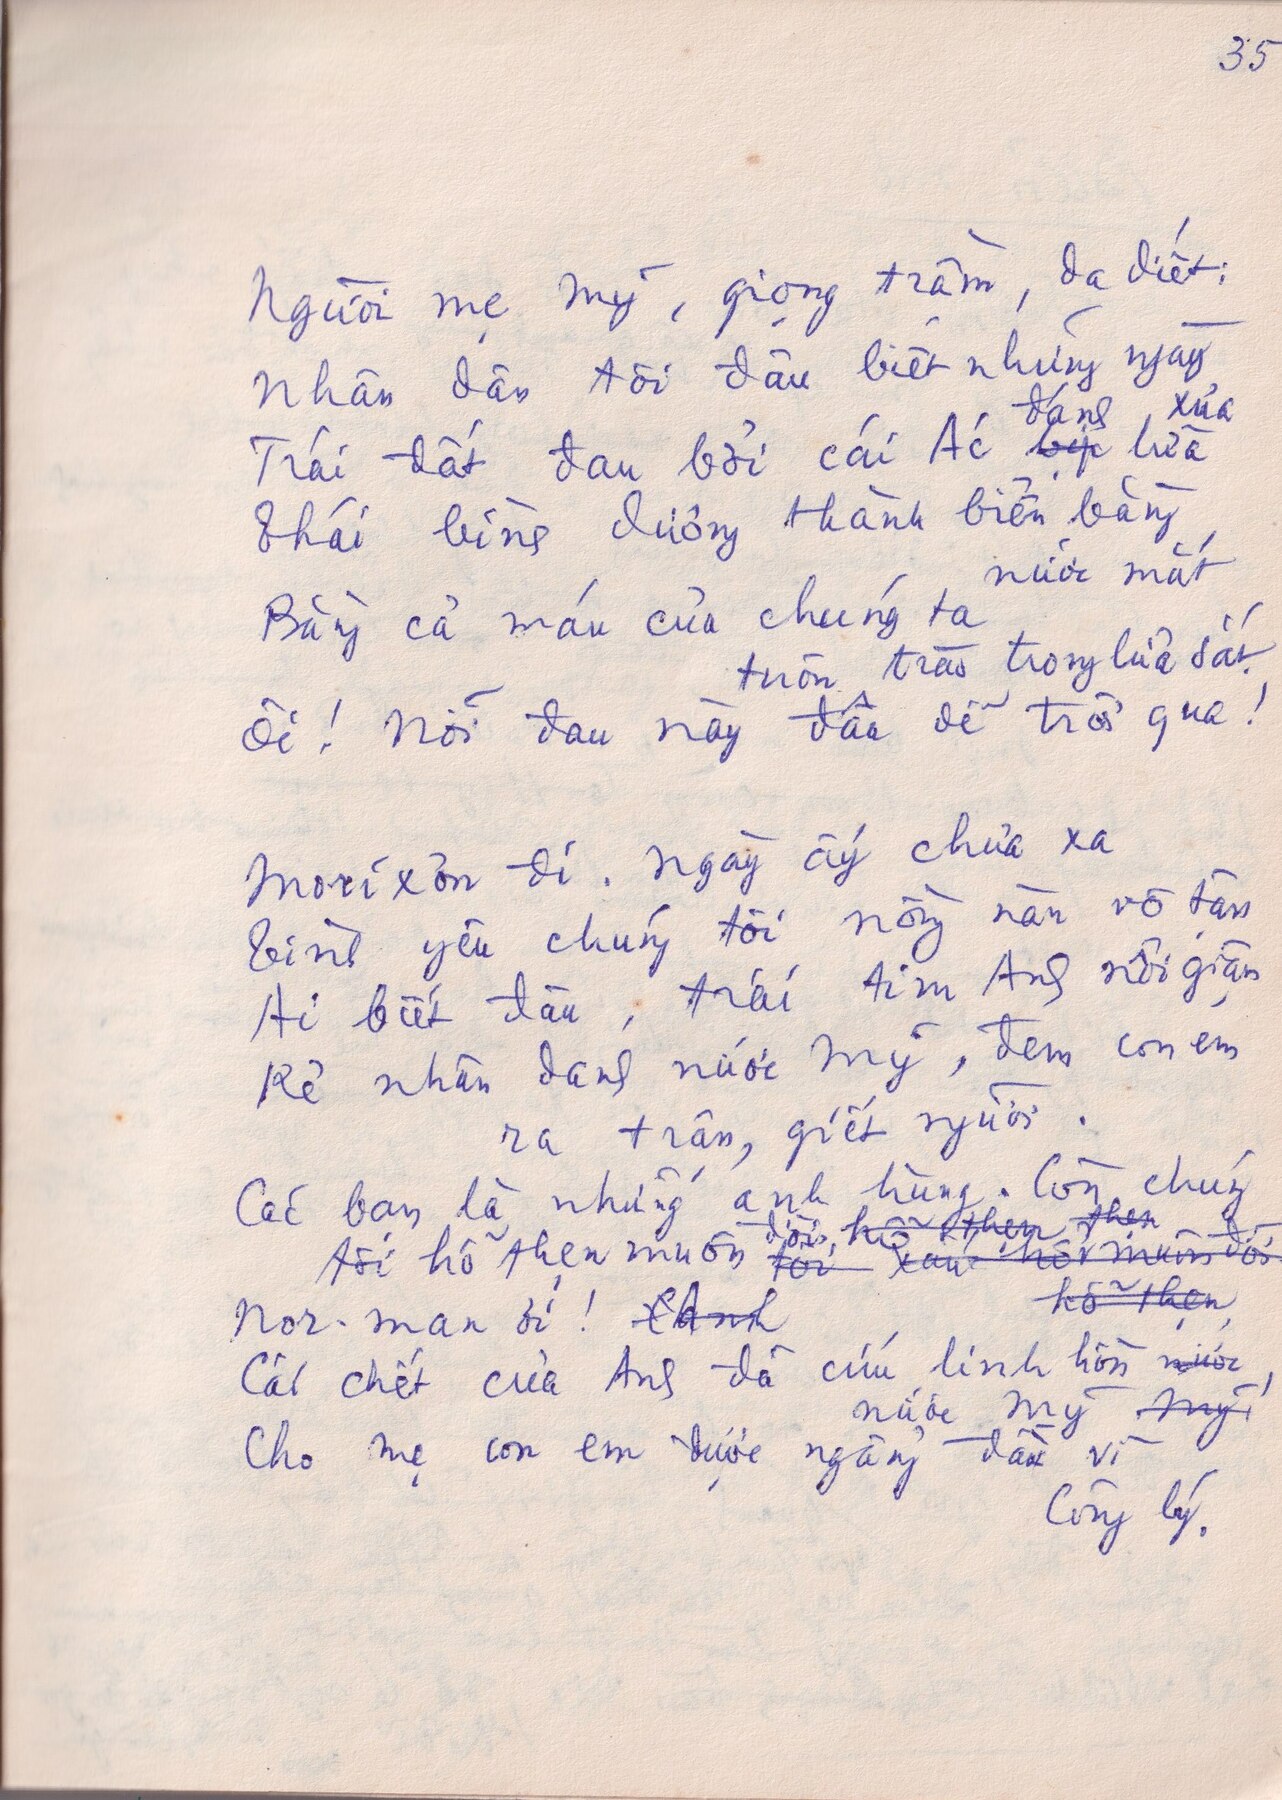 35
Người mẹ Mỹ, giọng trầm, da diết:
Nhân dân tôi đâu biết những ngày
đáng xưa
Trái đất đau bởi cái Ác bịp lừa
Thái bình dương thành biển bằng
nước mắt
Bằng cả máu của chúng ta
tuôn trào trong lửa sắt.
Ôi! Nỗi đau này đâu dễ trôi qua!
Morixơn đi. Ngày ấy chưa xa
Tình yêu chúng tôi nồng nàn vô tận
Ai biết đâu, trái tim Anh nổi giận
Kẻ nhân danh nước Mỹ, đem con em
ra trận, giết người.
Các bạn là những anh hùng. Còn chúng
tôi hổ thẹn muôn đời, hổ thẹn thẹn
tôi xấu hổ muôn đời
hổ thẹn
Nor-man ơi! Anh
Cái chết của Anh đã cứu linh hồn nước
nước Mỹ Mỹ
Cho mẹ con em được ngẩng đầu vì
Công lý.